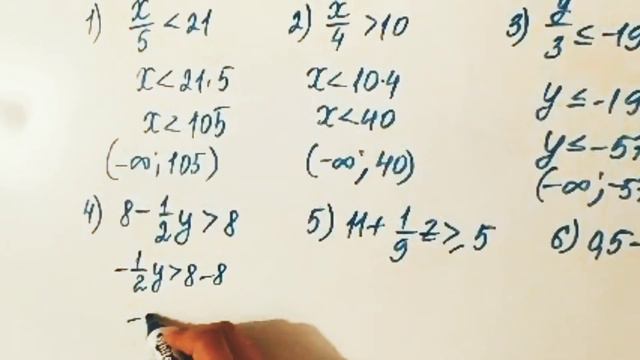 1) x/5 < 21
x < 21·5
x < 105
(-∞; 105)
2) x/4 > 10
x < 10·4
x < 40
(-∞; 40)
3) y/3 ≤ -19
y ≤ -19
y ≤ -57
(-∞; -57
4) 8 - 1/2 y > 8
-1/2 y > 8 - 8
-
5) 11 + 1/9 z ≥ 5
6) 0,5 -